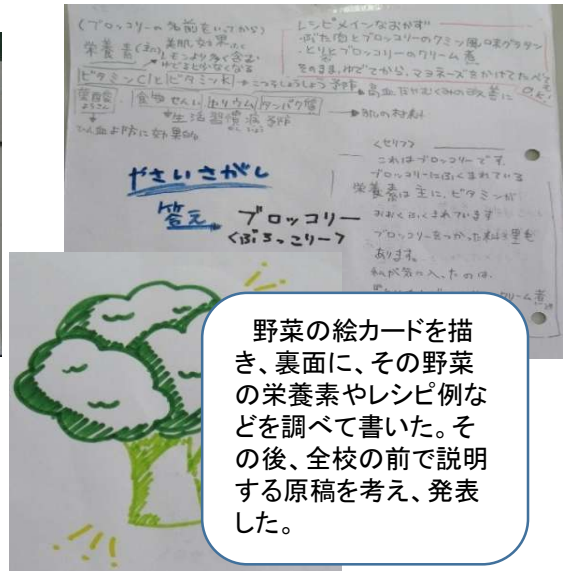 (ブロッコリーの名前をいってから)
栄養素(主に)
美肌効果にて
レモンより多く含む
ゆでると少なくなる
ビタミンCとビタミンK
こつそしょうしょう予防
高血圧やむくみの改善に
葉酸
食物せんい
カリウム
タンパク質
生活習慣病予防
肌の材料
ひん血よ防に効果的
レシピメインなおかず
・ぶた肉とブロッコリーのクミン風味グラタン
・とりとブロッコリーのクリーム煮
そのまま、ゆでてから、マヨネーズをかけてたべても
O.K!
やさいさがし
答え
ブロッコリー
<ぶろっこりー>
<セリフ>
これはブロッコリーです。
ブロッコリーにふくまれている
栄養素は主に、ビタミンが
おおくふくまれています
ブロッコリーをつかった料理も
あります。
私が気に入ったのは、
クリーム煮
野菜の絵カードを描
き、裏面に、その野菜
の栄養素やレシピ例な
どを調べて書いた。そ
の後、全校の前で説明
する原稿を考え、発表
した。